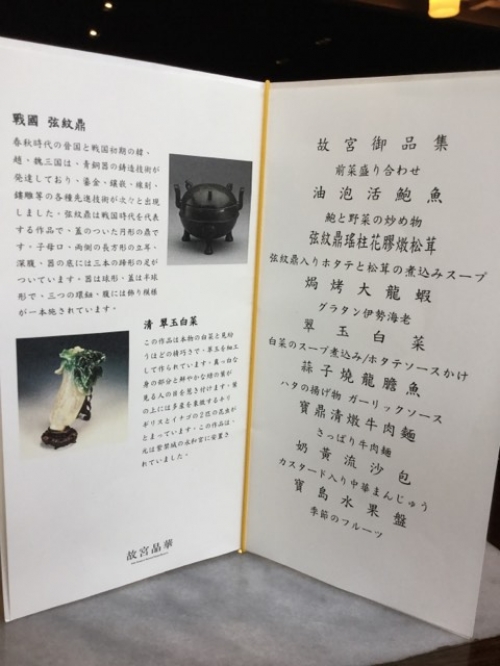 戰國 弦紋鼎
春秋時代の晉国と戦国初期の韓、
趙、魏三国は、青銅器の鋳造技術が
発達しており、鎏金、鑲嵌、線刻、
鏤雕等の各種先進技術が次々と出現
しました。弦紋鼎は戦国時代を代表
する作品で、蓋のついた円形の鼎で
す。子母口、両側の長方形の立耳、
深腹、器の底には三本の蹄形の足が
ついています。器は球形、蓋は半球
形で、三つの環鈕、腹には飾り模様
が一本施されています。
清 翠玉白菜
この作品は本物の白菜と見紛
うほどの精巧さで、翠玉を細工
して作られています。真っ白な
身の部分と鮮やかな緑の葉が
見る人の目を惹き付けます。葉
の上には多産を象徴するキリ
ギリスとイナゴの2匹の昆虫が
とまっています。この作品は、
元は紫禁城の永和宮に安置さ
れていました。
故宮晶華
故宮御品集
前菜盛り合わせ
油泡活鮑魚
鮑と野菜の炒め物
弦紋鼎瑤柱花膠燉松茸
弦紋鼎入りホタテと松茸の煮込みスープ
焗烤大龍蝦
グラタン伊勢海老
翠玉白菜
白菜のスープ煮込み/ホタテソースかけ
蒜子燒龍膽魚
ハタの揚げ物 ガーリックソース
寶鼎清燉牛肉麵
さっぱり牛肉麺
奶黃流沙包
カスタード入り中華まんじゅう
寶島水果盤
季節のフルーツ